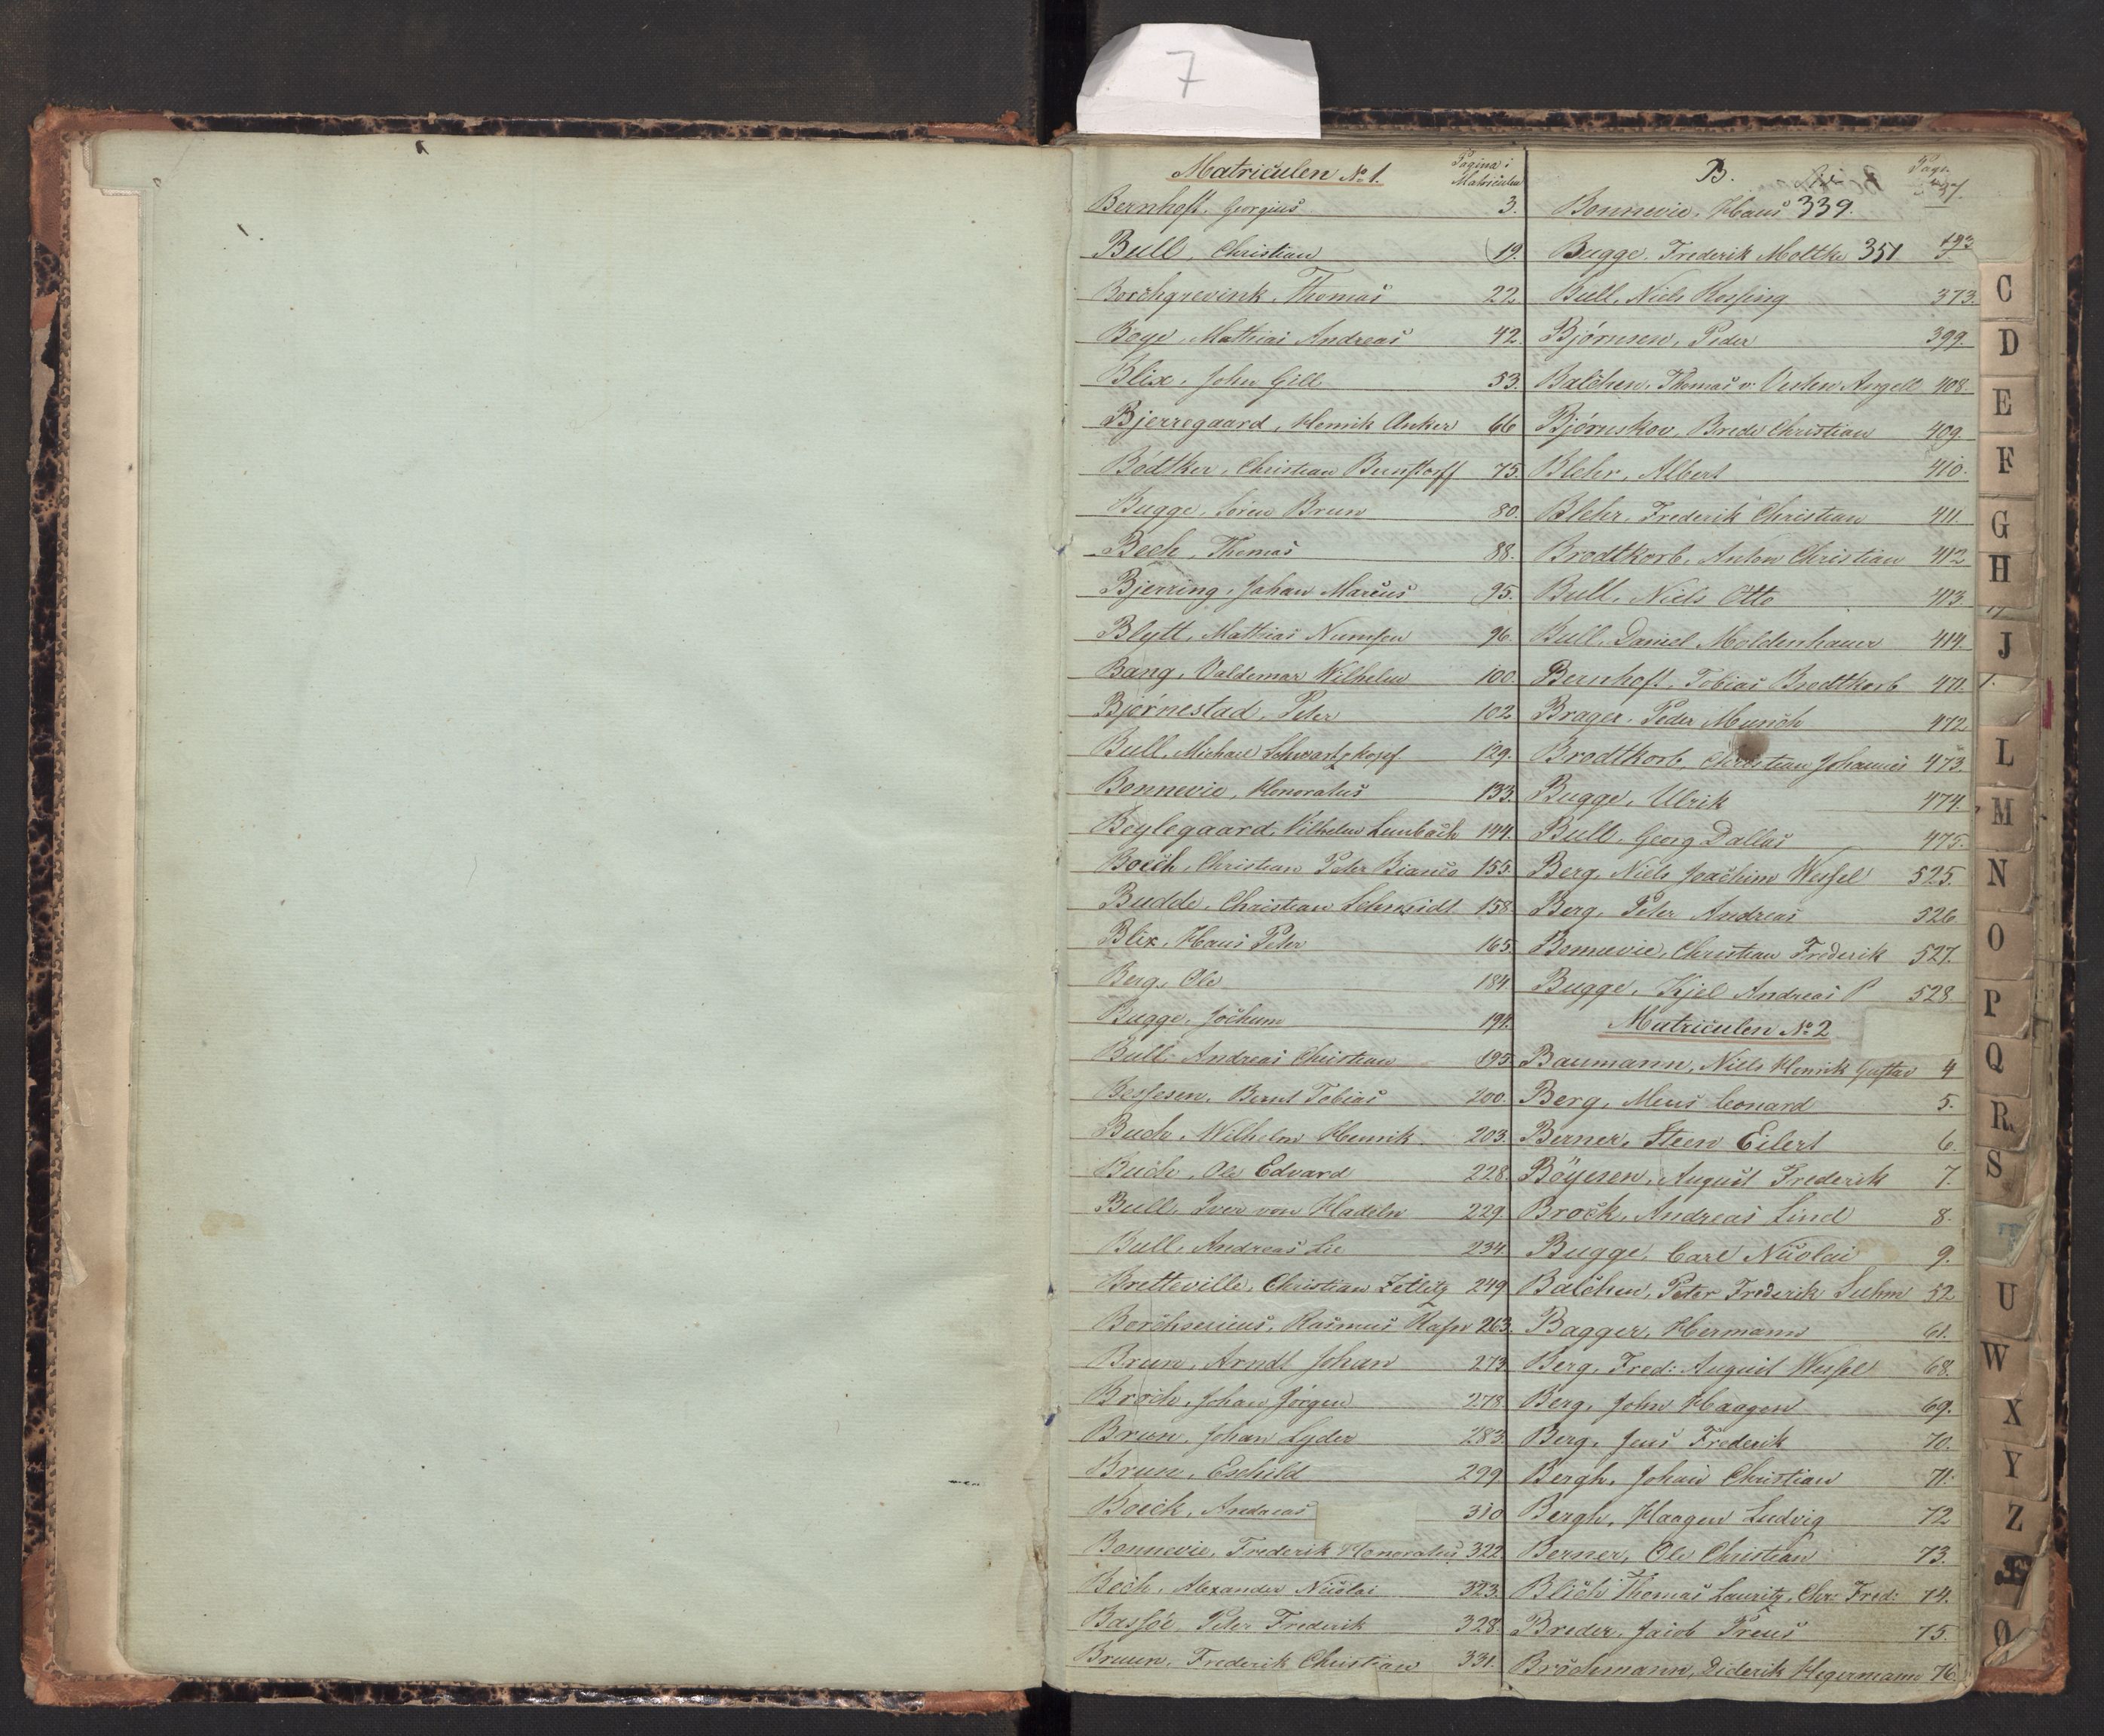 7
Matriculen No 1.
Pagina i
Matriculen
Bernhoft, Georgius 3.
Bull, Christian 19.
Borchgrevink, Thomas 22
Boye, Mathias Andreas 42.
Blix, John Gill 53.
Bjerregaard, Henrik Anker 66
Bødtker, Christian Bernstorff 75.
Bugge, Sören Brun 80.
Bech, Thomas 88.
Bjerring, Johan Marcus 95.
Blytt, Mathias Numsen 96.
Bang, Valdemar Wilhelm 100.
Bjørnestad, Peter 102
Bull, Michael Schwartzkopf 129.
Bonnevie, Honoratus 133.
Beylegaard, Vilhelm Lumbach 144.
Boeck, Christian Peter Bianco 155.
Budde, Christian Schmidt 158
Blix, Hans Peter 165.
Berg, Ole 184
Bugge, Jochum 194.
Bull, Andreas Christian 195.
Bessesen, Bernt Tobias 200.
Buch, Wilhelm Henrik 203.
Buch, Ole Edvard 228.
Bull, Iver von Hadeln 229.
Bull, Andreas Lie 234.
Bretteville, Christian Zetlitz 249
Borchsenius, Rasmus Rafn 263.
Brun, Arndt Johan 273
Broch, Johan Jørgen 278.
Brun, Johan Lyder 283.
Brun, Eschild 299
Boeck, Andreas 310
Bonnevie, Frederik Honoratus 322
Bech, Alexander Nicolai 323.
Bassøe, Peter Frederik 328.
Bruun, Frederik Christian 331.
B.
Pag.
Bonnevie, Hans 339.
Bugge, Frederik Moltke 351
Bull, Niels Rosing 373.
Bjørnsen, Peder 399.
Balchen, Thomas v. Westen Angell 408.
Bjørnskov, Brede Christian 409.
Blehr, Albert 410.
Blehr, Frederik Christian 411.
Brodtkorb, Anton Christian 412
Bull, Niels Otto 413.
Bull, Daniel Moldenhauer 414.
Bernhoft, Tobias Brodtkorb 471.
Brager, Peder Munch 472
Brodtkorb, Christian Johannes 473.
Bugge, Ulrik 474.
Bull, Georg Dallas 475.
Berg, Niels Joachim Wessel 525.
Berg, Peter Andreas 526
Bonnevie, Christian Frederik 527.
Bugge, Kjel Andreas P 528
Matriculen No 2
Baumann, Niels Henrik Gustav 4
Berg, Meus Leonard 5.
Berner, Steen Eilert 6.
Böyesen, August Frederik 7.
Brock, Andreas Lind 8.
Bugge, Carl Nicolai 9.
Balchen, Peter Frederik Suhm 52
Bagger, Hermann 61.
Berg, Fred: August Wessel 68.
Berg, John Haagen 69.
Berg, Jens Frederik 70.
Bergh, Johan Christian 71.
Bergh, Haagen Ludvig 72
Berner, Ole Christian 73.
Blich Thomas Lauritz, Chr: Fred: 74.
Breder, Jacob Preus 75.
Brochmann, Diderik Hegermann 76.
C
D
E
F
G
H
J
L
M
N
O
P
Q
R.
S
U
W
X
Y
Z
Ø